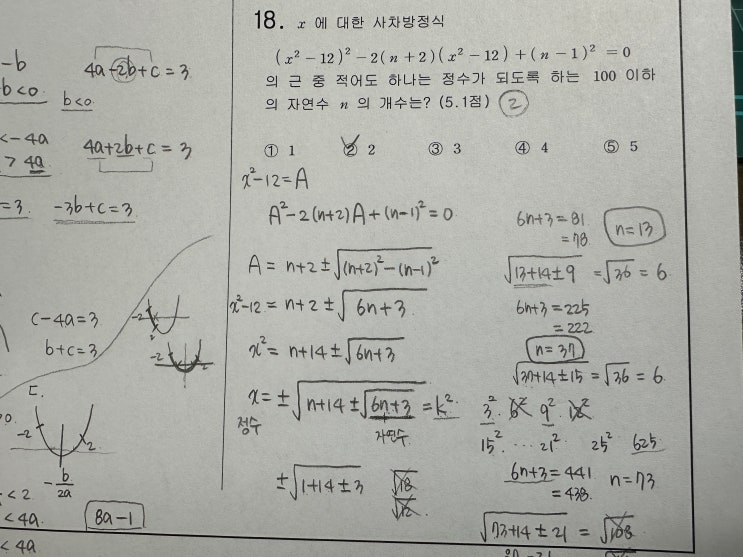 -b
b<0
4a+2b+c=3
b<0
<-4a
> 4a
4a+2b+c=3
=3
-3b+c=3
c-4a=3
b+c=3
-2
-2
2
-2
2
-b/2a
<2
<4a
8a-1
<4a
18. x 에 대한 사차방정식
(x²-12)²-2(n+2)(x²-12)+(n-1)²=0
의 근 중 적어도 하나는 정수가 되도록 하는 100 이하
의 자연수 n 의 개수는? (5.1점) ②
① 1 ② 2 ③ 3 ④ 4 ⑤ 5
x²-12=A
A²-2(n+2)A+(n-1)²=0
A=n+2±√((n+2)²-(n-1)²)
x²-12=n+2±√(6n+3)
x²=n+14±√(6n+3)
x=±√(n+14±√(6n+3))=k²
정수
자연수
±√(1+14±3) √18
√12
6n+3=81
=78
n=13
√(13+14±9)=√36=6
6n+3=225
=222
n=37
√(37+14±15)=√36=6
3² 6² 9² 12²
15² ... 21² 25² 625
6n+3=441
=438
n=73
√(73+14±21)=√108